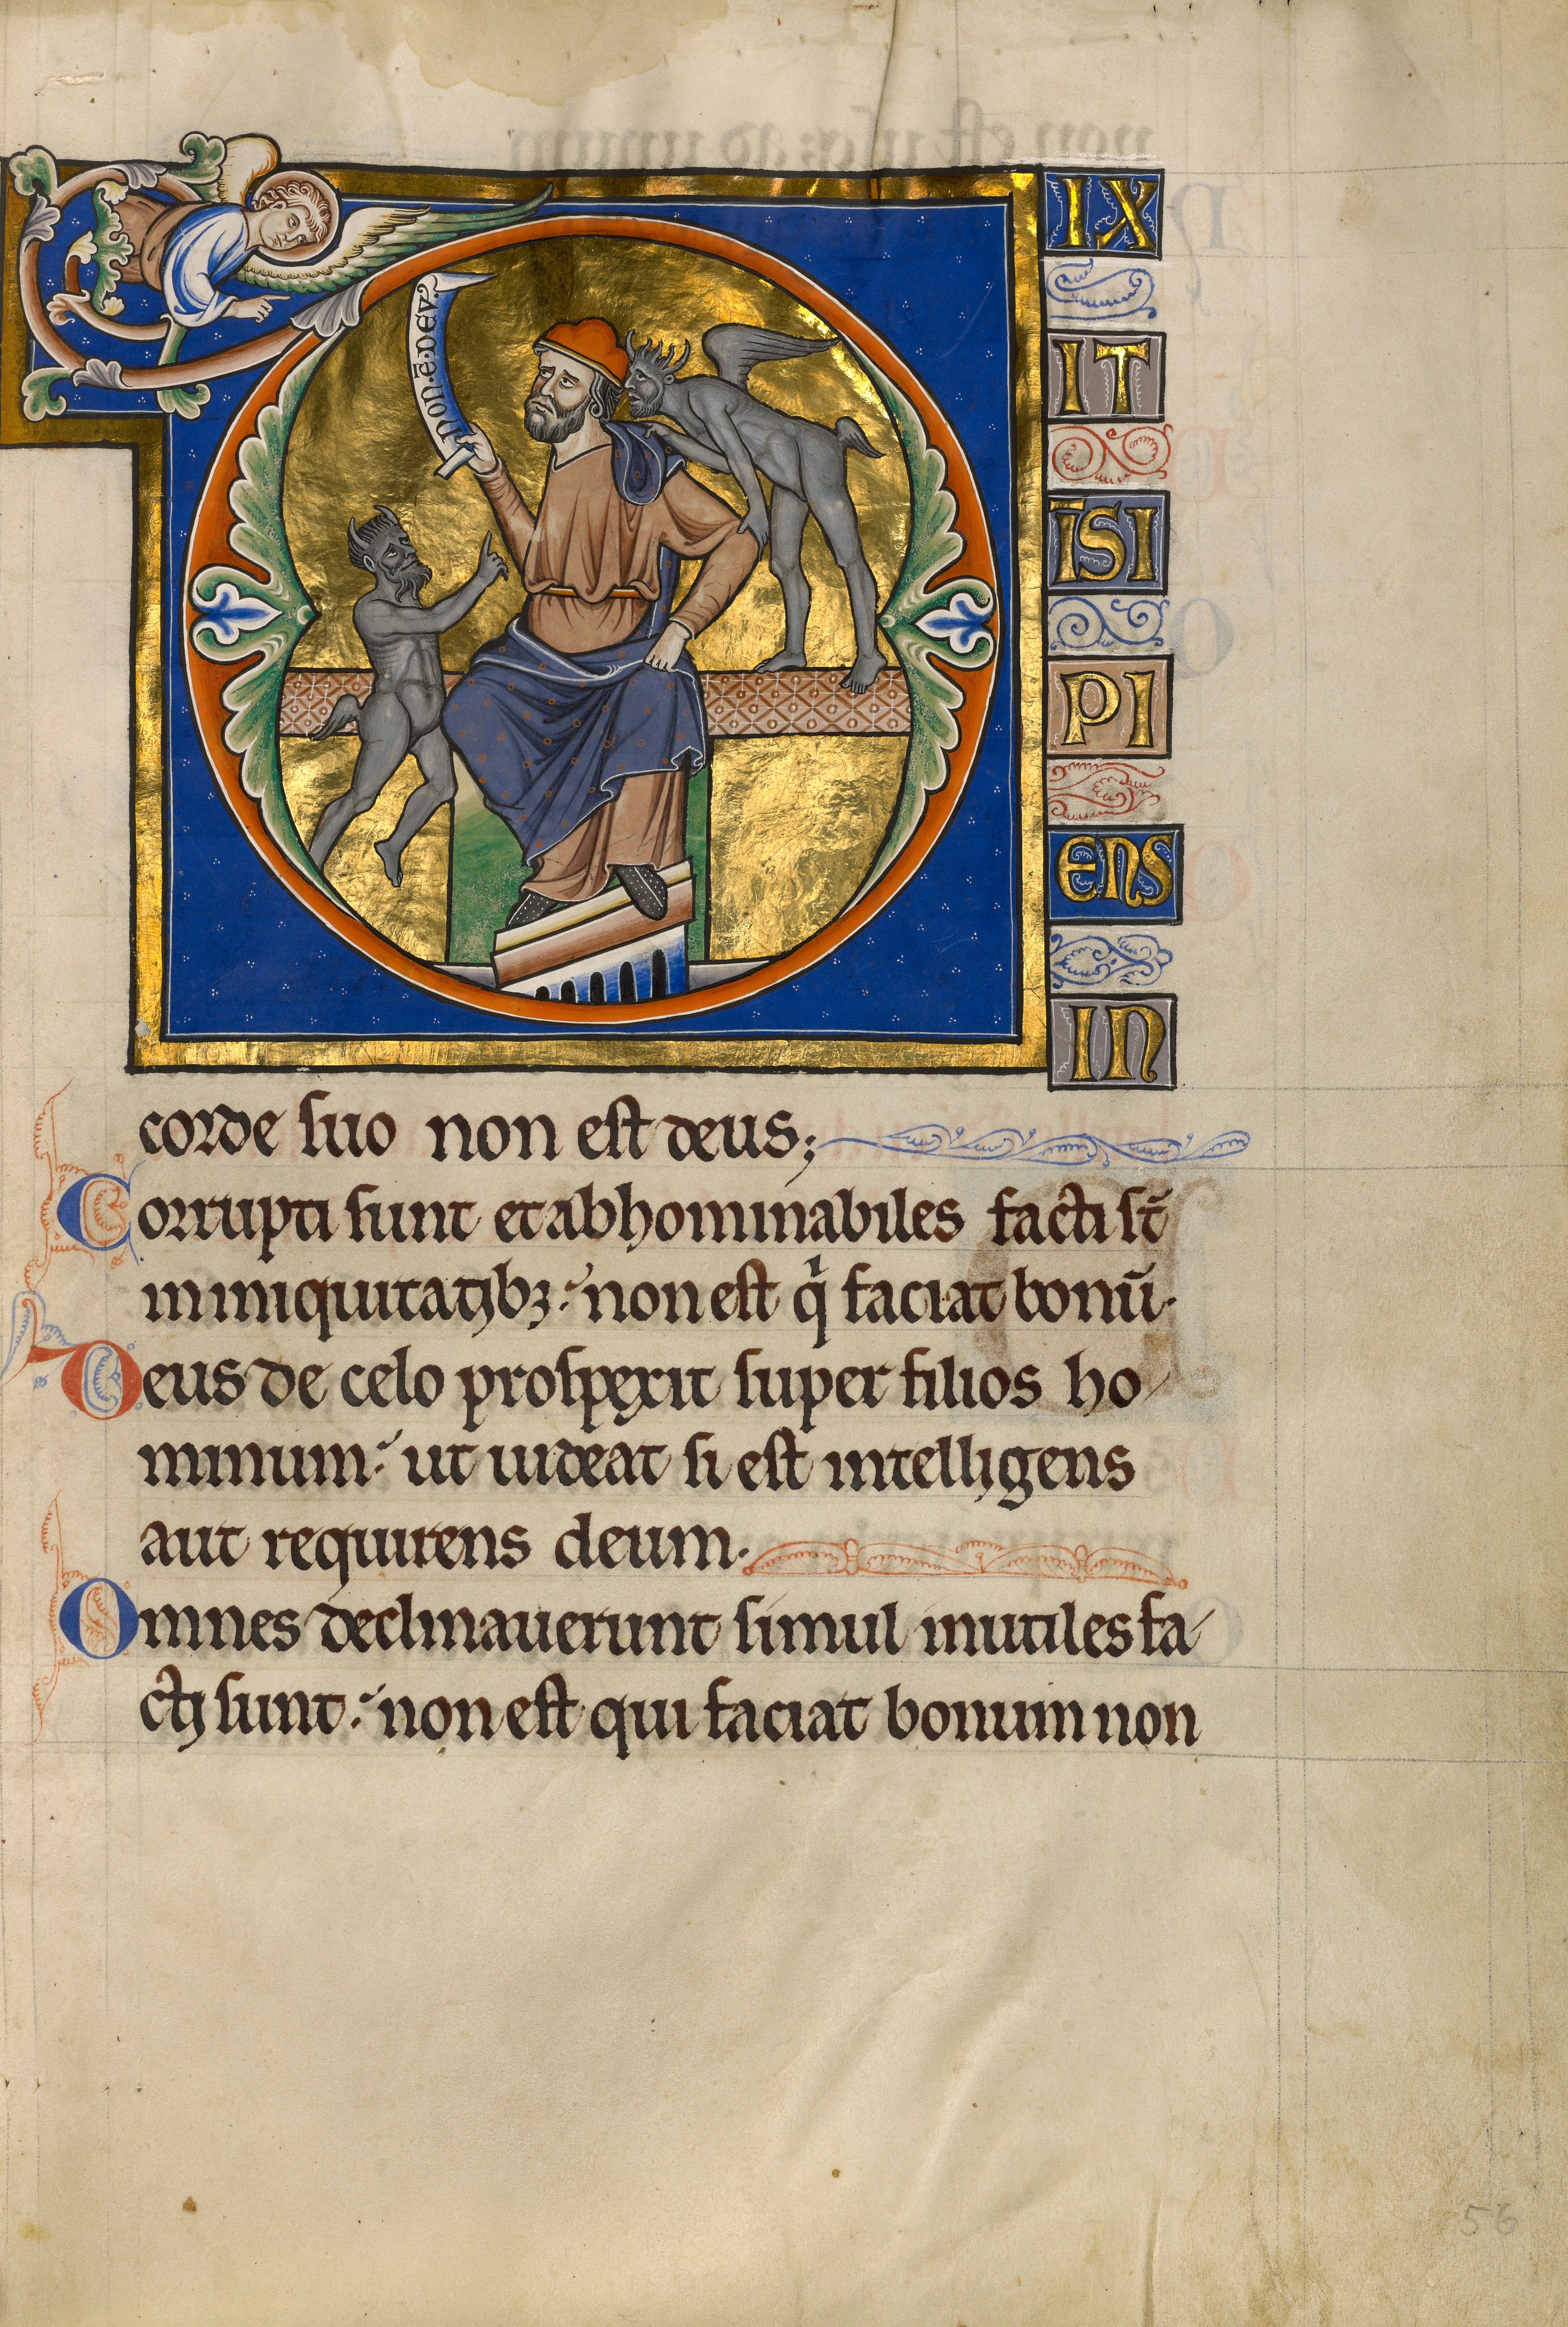 D
Non · ē · deu ·
IX
IT
ĪSI
PI
ENS
IN
corde suo non est deus;
Corrupti sunt et abhominabiles facti st̄
in iniquitatibꝫ: non est qi faciat bonū.
Deus de celo prospexit super filios ho
minum: ut uideat si est intelligens
aut requirens deum.
Omnes declinauerunt simul inutiles fa
cti sunt: non est qui faciat bonum non
56